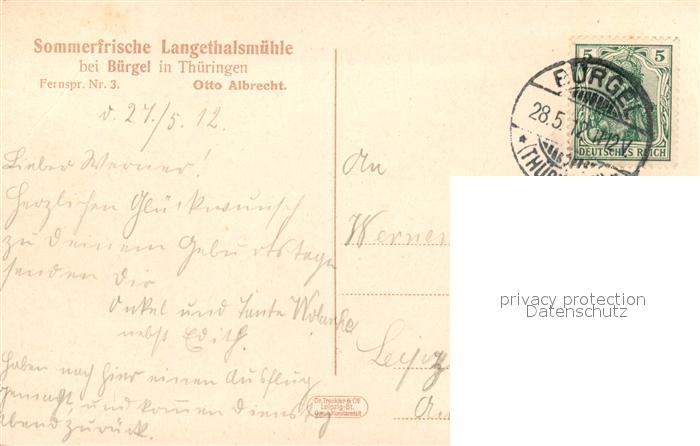 Sommerfrische Langethalsmühle
bei Bürgel in Thüringen
Fernspr. Nr. 3. Otto Albrecht.
d. 27./5. 12.
Lieber Werner!
Herzlichen Glückwunsch
zu Deinem Geburtstage
senden Dir
Onkel und Tante
nebst Edith.
Haben nach hier einen Ausflug
gemacht, und kommen Dienstag
Abend zurück.
An
Werner
Leipz
5 5
DEUTSCHES REICH
BÜRGEL
28.5.12
* (THÜR
Dr. Trenkler & Co
Leipzig-St.
privacy protection
Datenschutz